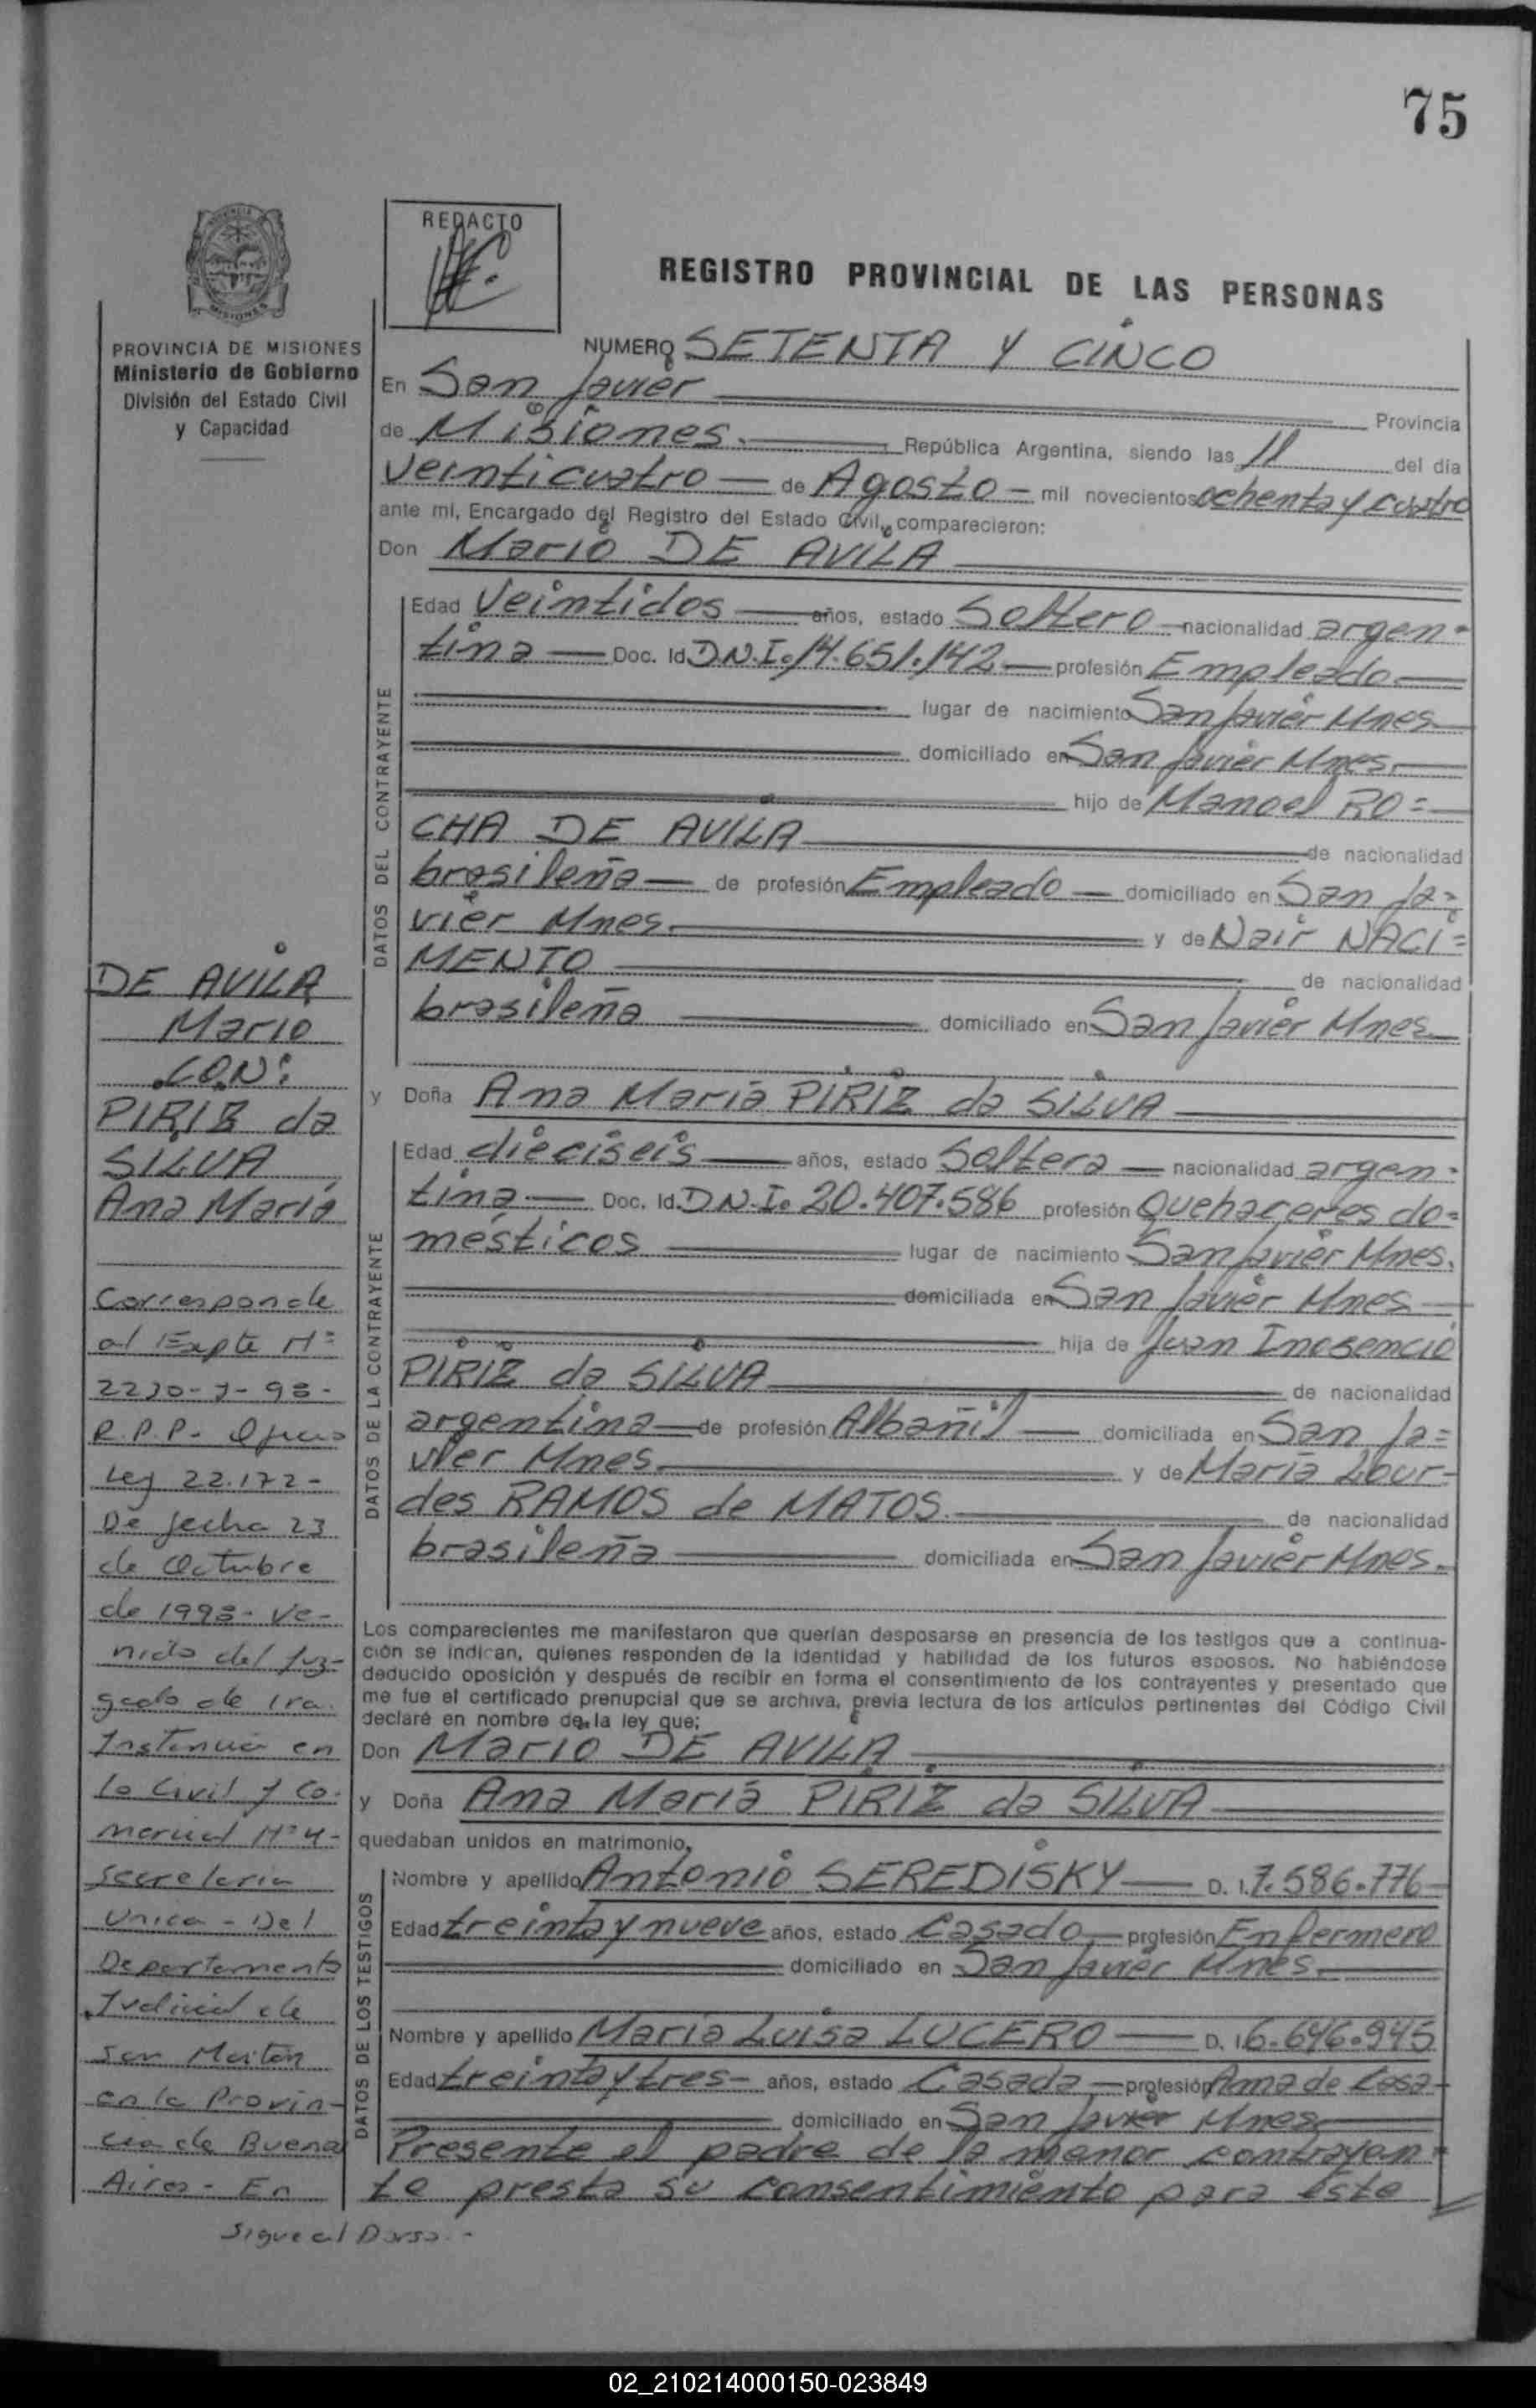 75
REDACTO
REGISTRO PROVINCIAL DE LAS PERSONAS
PROVINCIA DE MISIONES
Ministerio de Gobierno
División del Estado Civil
y Capacidad
NUMERO SETENTA Y CINCO
En San Javier Provincia
de Misiones. República Argentina, siendo las 11 del día
veinticuatro de Agosto mil novecientos ochenta y cuatro
ante mi, Encargado del Registro del Estado Civil, comparecieron:
Don Mario DE AVILA
DATOS DEL CONTRAYENTE
Edad Veintidos años, estado Soltero nacionalidad argen-
tina Doc. Id. D.N.I. 14.651.142 profesión Empleado
lugar de nacimiento San Javier Mnes
domiciliado en San Javier Mnes.
hijo de Manoel RO=
CHA DE AVILA de nacionalidad
brasileña de profesión Empleado domiciliado en San Ja=
vier Mnes. y de Nair NACI=
MENTO de nacionalidad
brasileña domiciliado en San Javier Mnes.
y Doña Ana María PIRIZ da SILVA
DATOS DE LA CONTRAYENTE
Edad dieciseis años, estado Soltera nacionalidad argen-
tina Doc. Id. D.N.I. 20.407.586 profesión Quehaceres do=
mésticos lugar de nacimiento San Javier Mnes.
domiciliada en San Javier Mnes
hija de Juan Inosencio
PIRIZ da SILVA de nacionalidad
argentina de profesión Albañil domiciliada en San Ja=
vier Mnes. y de María Lour-
des RAMOS de MATOS. de nacionalidad
brasileña domiciliada en San Javier Mnes.
Los comparecientes me manifestaron que querían desposarse en presencia de los testigos que a continua-
ción se indican, quienes responden de la identidad y habilidad de los futuros esposos. No habiéndose
deducido oposición y después de recibir en forma el consentimiento de los contrayentes y presentado que
me fue el certificado prenupcial que se archiva, previa lectura de los artículos pertinentes del Código Civil
declaré en nombre de la ley que;
Don Mario DE AVILA
y Doña Ana María PIRIZ da SILVA
quedaban unidos en matrimonio,
DATOS DE LOS TESTIGOS
Nombre y apellido Antonio SEREDISKY D. I. 7.586.776
Edad treinta y nueve años, estado Casado profesión Enfermero
domiciliado en San Javier Mnes.
Nombre y apellido María Luisa LUCERO D. I. 6.646.945
Edad treinta y tres años, estado Casada profesión Ama de Casa
domiciliado en San Javier Mnes
Presente el padre de la menor contrayen=
te presta su consentimiento para este
DE AVILA
Mario
CON:
PIRIZ da
SILVA
Ana María
Corresponde
al Expte Nº
R.P.P.
Ley 22.172-
De fecha 23
de Octubre
de 1998- Ve-
nido del Juz-
gado de 1ra.
Instancia en
lo Civil y Co-
mercial Nº 4-
Secretaria
Unica - Del
Departamento
Judicial de
San Martín
en la Provin-
cia de Buenos
Aires - En
Sigue al Dorso.-
02_210214000150-023849